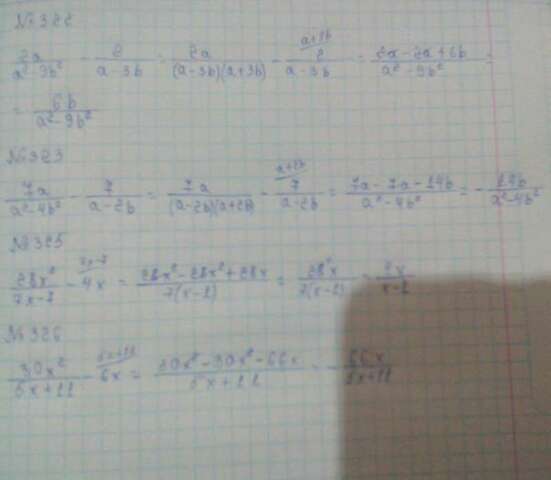 №322
2a/(a²-9b²) - 2/(a-3b) = 2a/((a-3b)(a+3b)) - 2/(a-3b) = (2a-2a+6b)/(a²-9b²) =
= 6b/(a²-9b²)
№323
7a/(a²-4b²) - 7/(a-2b) = 7a/((a-2b)(a+2b)) - 7/(a-2b) = (7a-7a-14b)/(a²-4b²) = -14b/(a²-4b²)
№325
28x²/(7x-7) - 4x = (28x²-28x²+28x)/(7(x-1)) = 28x/(7(x-1)) = 4x/(x-1)
№326
30x²/(5x+11) - 6x = (30x²-30x²-66x)/(5x+11) = -66x/(5x+11)